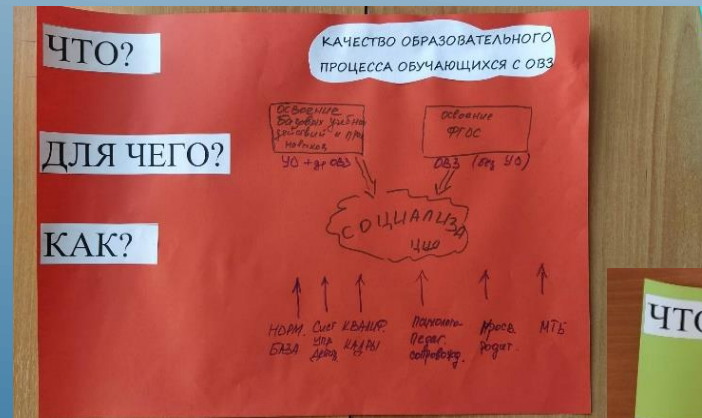 ЧТО?
КАЧЕСТВО ОБРАЗОВАТЕЛЬНОГО
ПРОЦЕССА ОБУЧАЮЩИХСЯ С ОВЗ
ДЛЯ ЧЕГО?
освоение
Базовых учебных
действий и
навыков
УО + др ОВЗ
освоение
ФГОС
ОВЗ (без УО)
КАК?
СОЦИАЛИЗА
ЦИЯ
НОРМ.
БАЗА
Сист
упр
КВАЛИФ.
КАДРЫ
Психолого
Педаг.
сопровожд.
Просв.
родит.
МТБ
ЧТО